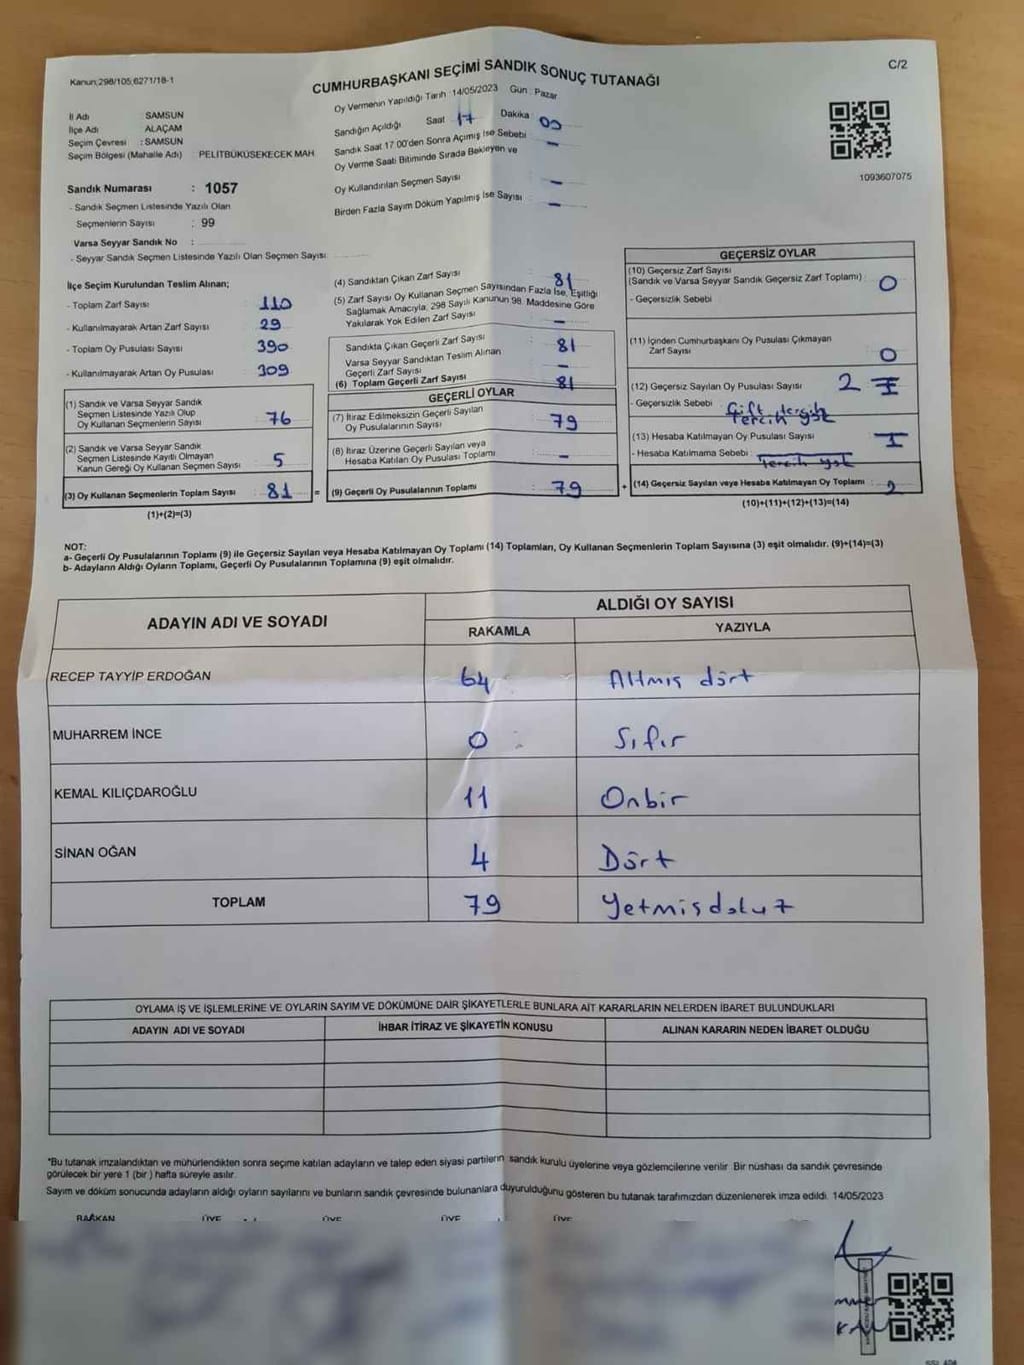 Kanun;298/105,6271/18-1
CUMHURBAŞKANI SEÇİMİ SANDIK SONUÇ TUTANAĞI
C/2
Oy Vermenin Yapıldığı Tarih 14/05/2023 Gün : Pazar
İl Adı SAMSUN
İlçe Adı ALAÇAM
Seçim Çevresi : SAMSUN
Seçim Bölgesi (Mahalle Adı) PELITBÜKÜSEKECEK MAH
Sandığın Açıldığı Saat 17 Dakika : 00
Sandık Saat 17 00'den Sonra Açımış Ise Sebebi –
Oy Verme Saati Bitiminde Sırada Bekleyen ve
Oy Kullandırılan Seçmen Sayısı –
Birden Fazla Sayım Döküm Yapılmış Ise Sayısı –
1093607075
Sandık Numarası : 1057
- Sandık Seçmen Listesinde Yazılı Olan
Seçmenlerin Sayısı : 99
Varsa Seyyar Sandık No :
- Seyyar Sandık Seçmen Listesinde Yazılı Olan Seçmen Sayısı:
İlçe Seçim Kurulundan Teslim Alınan;
- Toplam Zarf Sayısı : 110
- Kullanılmayarak Artan Zarf Sayısı : 29
- Toplam Oy Pusulası Sayısı : 390
- Kullanılmayarak Artan Oy Pusulası : 309
(1) Sandık ve Varsa Seyyar Sandık
Seçmen Listesinde Yazılı Olup
Oy Kullanan Seçmenlerin Sayısı : 76
(2) Sandık ve Varsa Seyyar Sandık
Seçmen Listesinde Kayıtlı Olmayan
Kanun Gereği Oy Kullanan Seçmen Sayısı : 5
(3) Oy Kullanan Seçmenlerin Toplam Sayısı : 81 =
(1)+(2)=(3)
(4) Sandıktan Çıkan Zarf Sayısı : 81
(5) Zarf Sayısı Oy Kullanan Seçmen Sayısından Fazla Ise, Eşitliği
Sağlamak Amacıyla, 298 Sayılı Kanunun 98. Maddesine Göre
Yakılarak Yok Edilen Zarf Sayısı : –
Sandıkta Çıkan Geçerli Zarf Sayısı : 81
Varsa Seyyar Sandıktan Teslim Alınan
Geçerli Zarf Sayısı : –
(6) Toplam Geçerli Zarf Sayısı : 81
GEÇERLİ OYLAR
(7) İtiraz Edilmeksizin Geçerli Sayılan
Oy Pusulalarının Sayısı : 79
(8) İtiraz Üzerine Geçerli Sayılan veya
Hesaba Katılan Oy Pusulası Toplamı : –
(9) Geçerli Oy Pusulalarının Toplamı : 79 +
GEÇERSİZ OYLAR
(10) Geçersiz Zarf Sayısı
(Sandık ve Varsa Seyyar Sandık Geçersiz Zarf Toplamı) : 0
- Geçersizlik Sebebi :
(11) İçinden Cumhurbaşkanı Oy Pusulası Çıkmayan
Zarf Sayısı : 0
(12) Geçersiz Sayılan Oy Pusulası Sayısı : 2
- Geçersizlik Sebebi : Çift tercih
Tercih yok
(13) Hesaba Katılmayan Oy Pusulası Sayısı :
- Hesaba Katılmama Sebebi : Tercih yok
(14) Geçersiz Sayılan veya Hesaba Katılmayan Oy Toplamı : 2
(10)+(11)+(12)+(13)=(14)
NOT:
a- Geçerli Oy Pusulalarının Toplamı (9) ile Geçersiz Sayılan veya Hesaba Katılmayan Oy Toplamı (14) Toplamları, Oy Kullanan Seçmenlerin Toplam Sayısına (3) eşit olmalıdır. (9)+(14)=(3)
b- Adayların Aldığı Oyların Toplamı, Geçerli Oy Pusulalarının Toplamına (9) eşit olmalıdır.
ADAYIN ADI VE SOYADI
ALDIĞI OY SAYISI
RAKAMLA YAZIYLA
RECEP TAYYİP ERDOĞAN 64 Altmış dört
MUHARREM İNCE 0 Sıfır
KEMAL KILIÇDAROĞLU 11 Onbir
SİNAN OĞAN 4 Dört
TOPLAM 79 Yetmişdokuz
OYLAMA İŞ VE İŞLEMLERINE VE OYLARIN SAYIM VE DÖKÜMÜNE DAİR ŞİKAYETLERLE BUNLARA AİT KARARLARIN NELERDEN İBARET BULUNDUKLARI
ADAYIN ADI VE SOYADI İHBAR İTİRAZ VE ŞİKAYETİN KONUSU ALINAN KARARIN NEDEN İBARET OLDUĞU
*Bu tutanak imzalandıktan ve mühürlendikten sonra seçime katılan adayların ve talep eden siyasi partilerin sandık kurulu üyelerine veya gözlemcilerine verilir. Bir nüshası da sandık çevresinde
görülecek bir yere 1 (bir) hafta süreyle asılır.
Sayım ve döküm sonucunda adayların aldığı oyların sayılarını ve bunların sandık çevresinde bulunanlara duyurulduğunu gösteren bu tutanak tarafımızdan düzenlenerek imza edildi. 14/05/2023
BAŞKAN ÜYE ÜYE ÜYE ÜYE